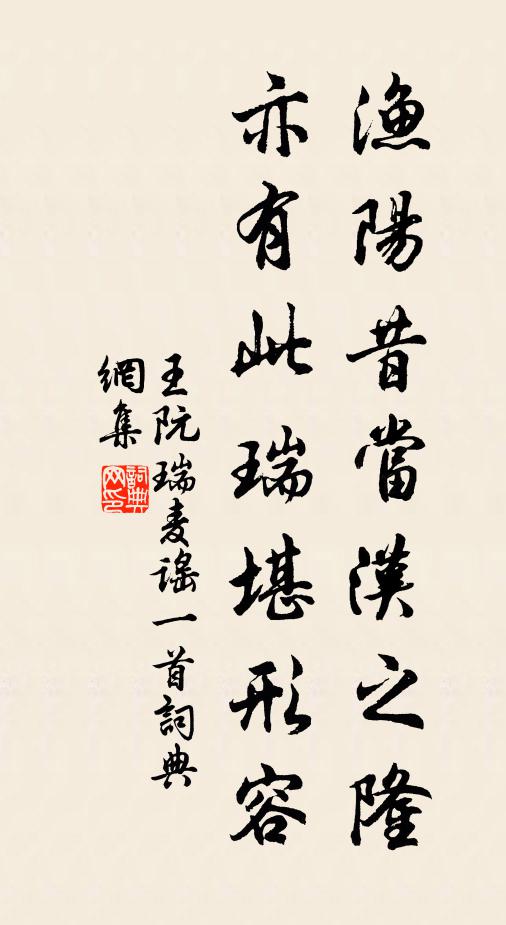 漁陽昔當漢之隆
亦有此瑞堪形容
王阮瑞麦謠一首詞典
網集
詞典
网印